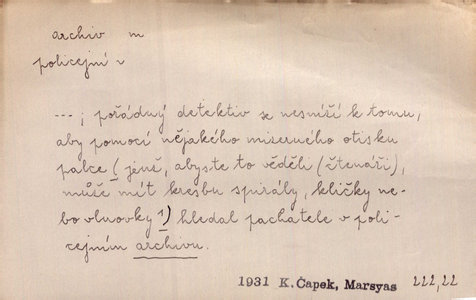 archiv m
policejní v
---; pořádný detektiv se nesníží k tomu,
aby pomocí nějakého miserného otisku
palce (jenž, abyste to věděli (čtenáři),
může mít kresbu spirály, kličky ne-
bo vlnovky 1) hledal pachatele v poli-
cejním archivu.
1931 K.Čapek, Marsyas 222,22